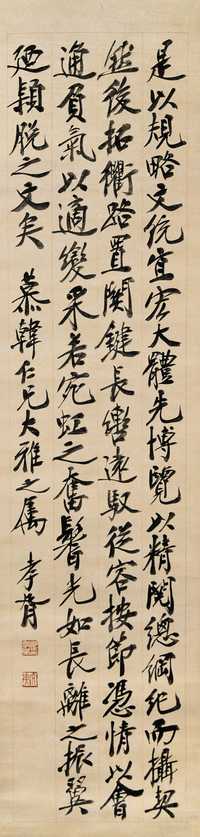 是以規略文統宜宏大體先博覽以精閱總綱紀而攝契
然後拓衢路置關鍵長轡遠馭從容按節憑情以會
通負氣以適變采若宛虹之奮鬐光如長離之振翼
迺穎脫之文矣 慕韓仁兄大雅之屬 孝胥